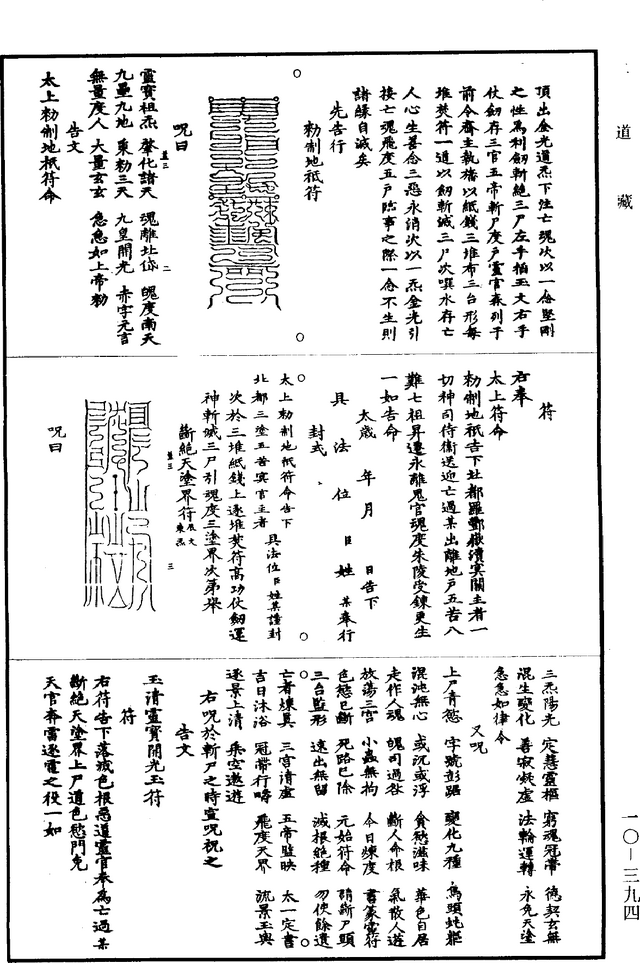 道藏
頂出金光道炁下注亡魂次以一念堅剛
之性爲利劒斬絶三尸左手拍玉文右手
仗劒存三官五帝斬尸度尸靈官森列于
前令齋主執旛以紙錢三堆布三台形每
堆焚符一道以劒斬滅三尸次噀水存亡
人心生善念三惡永消次以一炁金光引
接亡魂飛度五户臨事之際一念不生則
諸緣自滅矣
先告行
勑制地祇符
呪曰
靈寶祖炁　肇化諸天　魂離北岱　魄度南天
九壘九地　東勑三天　九皇開光　赤字元言
無量度人　大量玄玄　急急如上帝勑
告文
太上勑制地祇符命
符
右奉
太上符命
勑制地祇告下北都羅酆嶽瀆冥關主者一
切神司侍衞送迎亡過某出離地户五苦八
難七祖昇遷永離鬼官魂度朱陵受鍊更生
一如告命
太歲　年　月　日告下
具　法　位　臣　姓　某奉行
封式
太上勑制地祇符命告下
北都三塗五苦冥官主者
具法位臣姓某謹封
次於三堆紙錢上逐堆焚符高功仗劒運
神斬滅三尸引魂度三塗界次第舉
斷絶天塗界符
呪曰
三炁陽光　定慧靈樞　窮魂冠帶　德契玄無
混生變化　善寂凝虛　法輪運轉　永免天塗
急急如律令
又呪
上尸青慾　字號彭琚　變化九種　鳥頭蛇軀
混沌無心　或沉或浮　貪慾滋味　華色自居
走作人魂　魄司過咎　斷人命根　氣散人遊
放蕩三宫　小蟲無拘　今日煉度　書篆靈符
色慾已斷　死路已除　元始符命　誚斷尸頭
三台監形　速出無留　滅根絶種　勿使餘遺
亡者煉真　三宫清虛　五帝監映　太一定書
吉日沐浴　冠帶行疇　飛度天界　流景玉輿
逐景上清　乘空遨遊
右呪於斬尸之時宣呪祝之
告文
玉清靈寶開光玉符
符
右符告下落滅色根惡道靈官奉爲亡過某
斷絶天塗界上尸道色慾門免
天官奔雷逐電之役一如
一〇—三九四